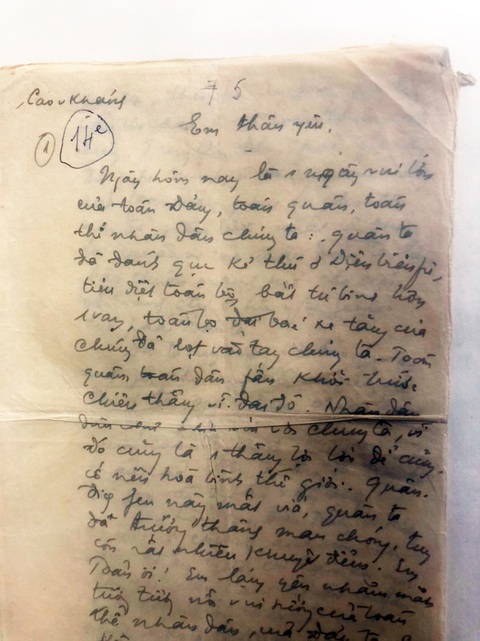 Cao Kháng
7 5
Em thân yêu.
1
14è
Ngày hôm nay là 1 ngày vui lớn
của toàn Đảng, toàn quân, toàn
thể nhân dân chúng ta: quân ta
đã đánh quỵ kẻ thù ở Điện biên phủ,
tiêu diệt toàn bộ, bắt tù binh hơn
1 vạn, toàn bộ đại bác xe tăng của
chúng đã lọt vào tay chúng ta. Toàn
quân toàn dân phấn khởi trước
chiến thắng vĩ đại đó. Nhân dân
chúng ta, vì
đó cũng là 1 thắng lợi lớn để củng
cố nền hoà bình thế giới. Quân
địch phen này mất vía, quân ta
đã trưởng thành mau chóng, tuy
còn rất nhiều khuyết điểm. Em
Toàn ơi! Em lặng yên nhắm mắt
tưng bừng nỗi vui mừng của toàn
thể nhân dân, của